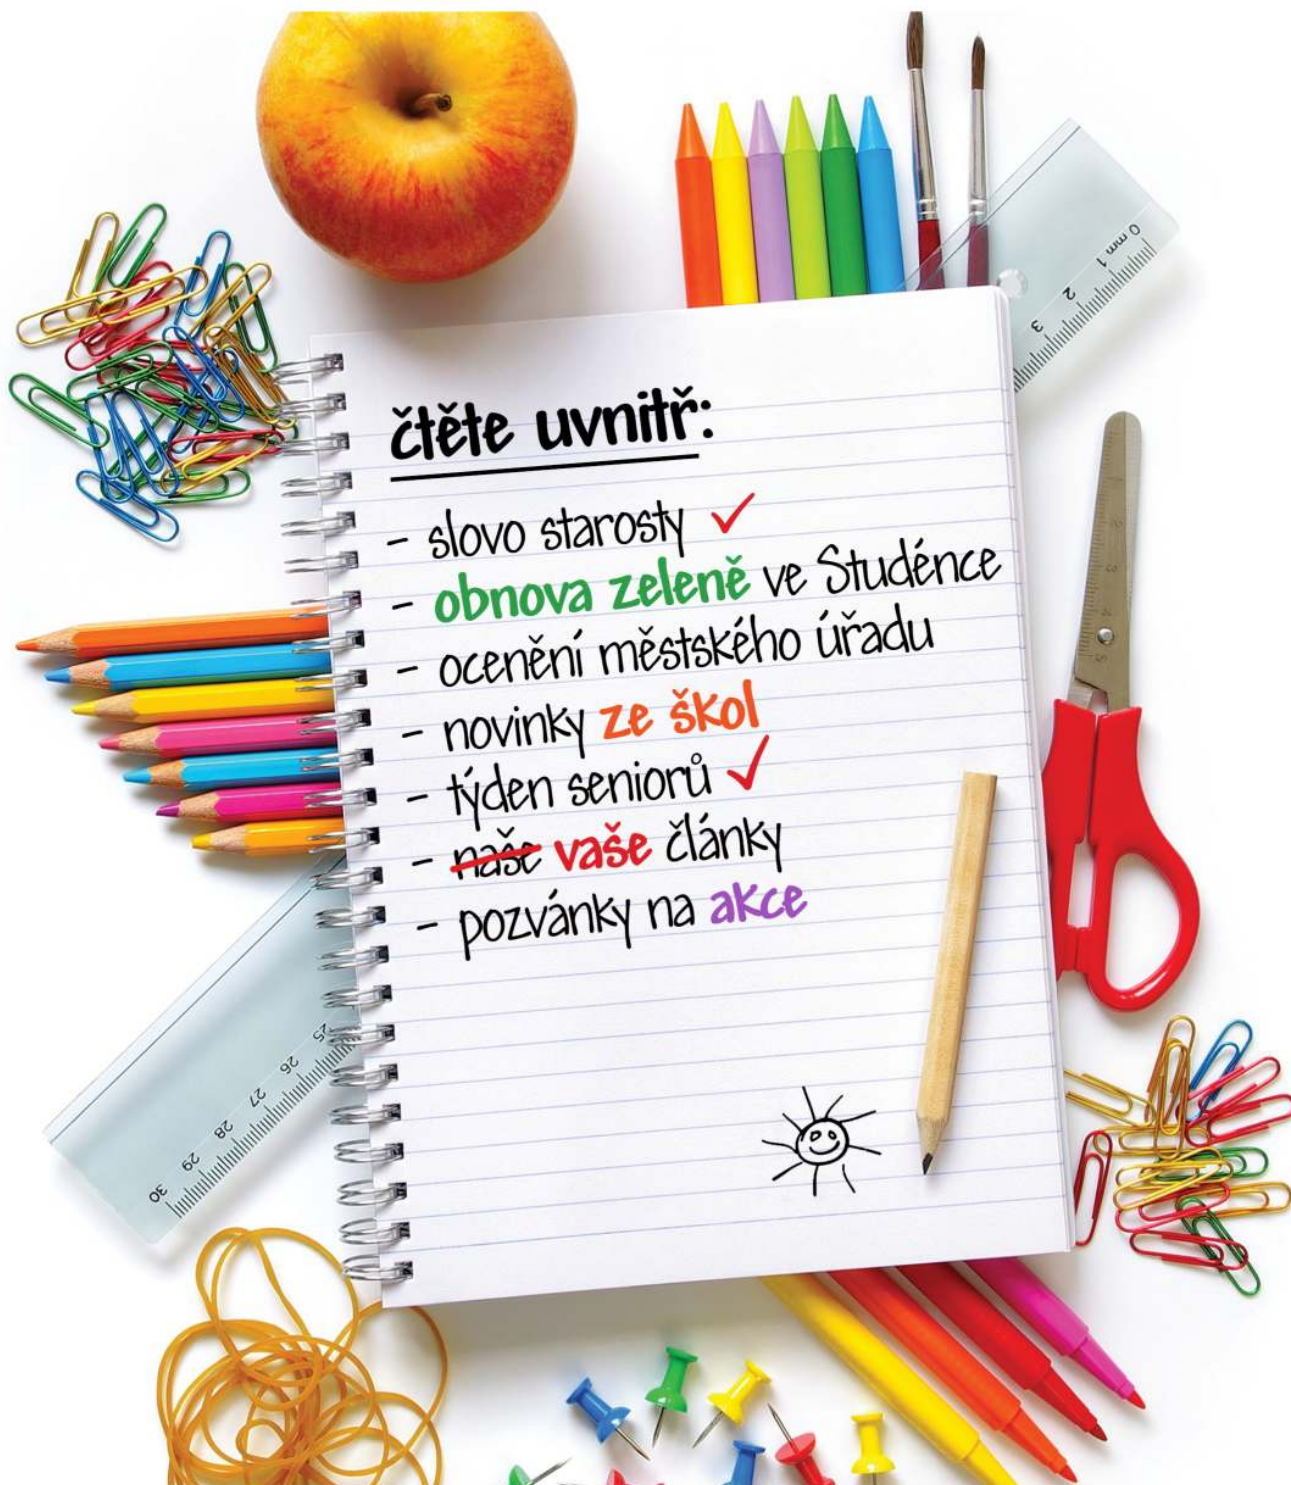 čtěte uvnitř:
- slovo starosty ✓
- obnova zeleně ve Studénce
- ocenění městského úřadu
- novinky ze škol
- týden seniorů ✓
- naše vaše články
- pozvánky na akce
0 mm 1
2
3
25
26
27
28
29
30